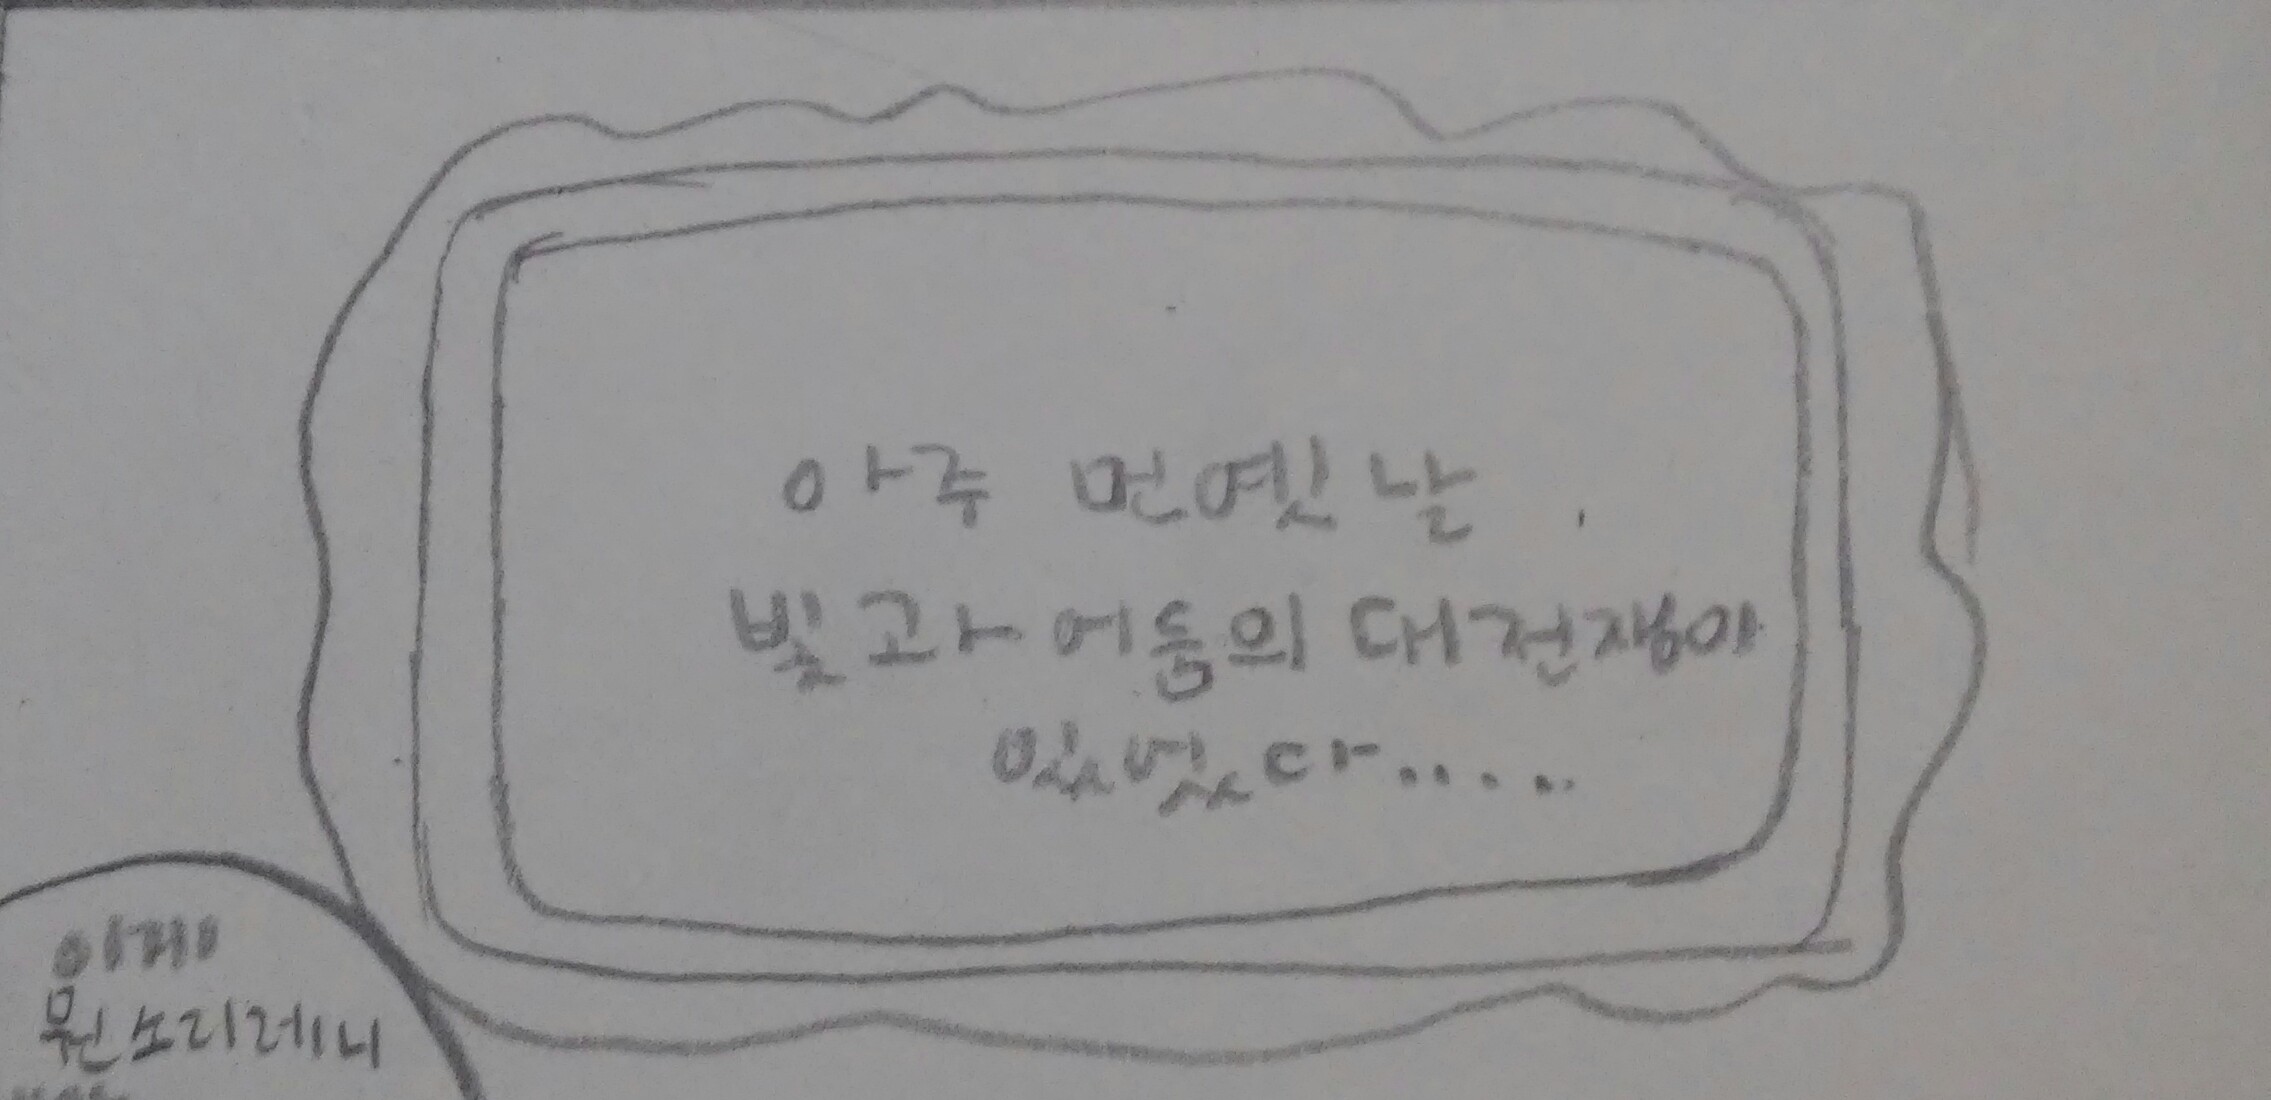 아주 먼옛날
빛과 어둠의 대전쟁이
있었다.....
이게
뭔소리레니